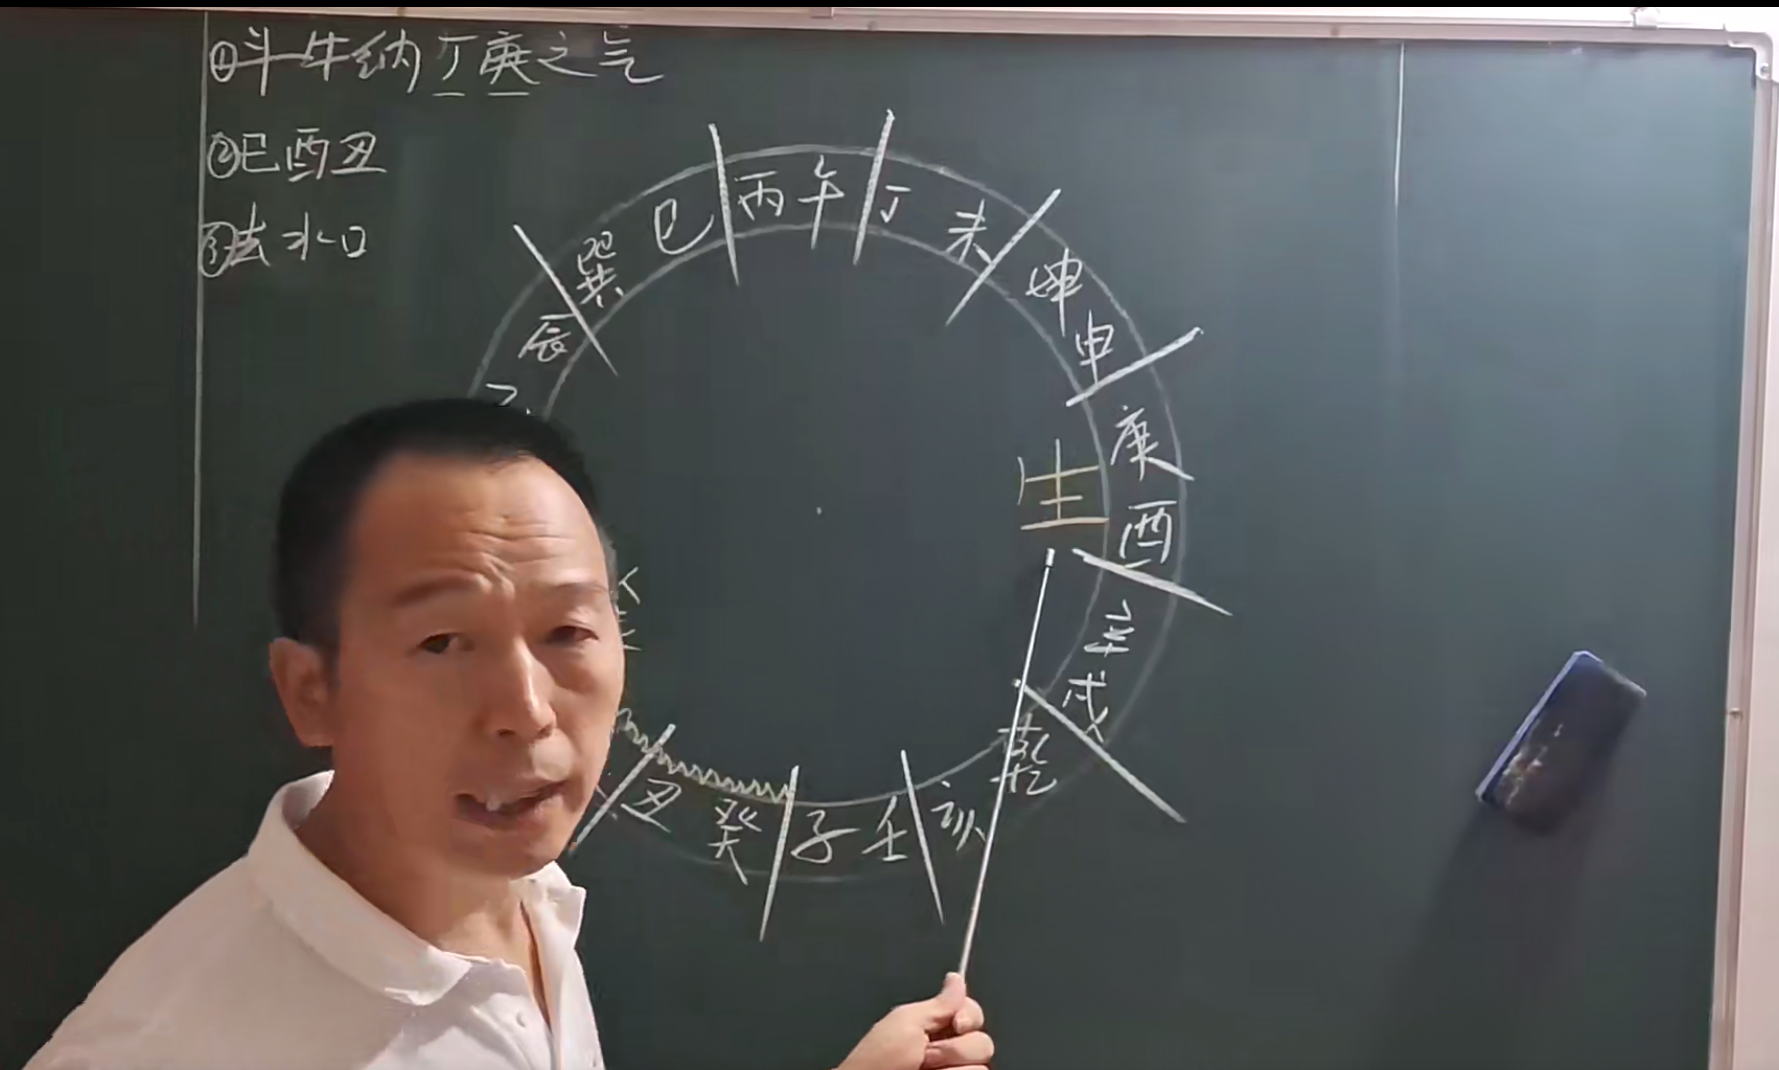 ①斗牛纳丁庚之气
②巳酉丑
③去水口
巳
丙午
丁
未
巽
辰
坤
申
庚
酉
生
辛
戌
乾
亥
壬
子
癸
丑